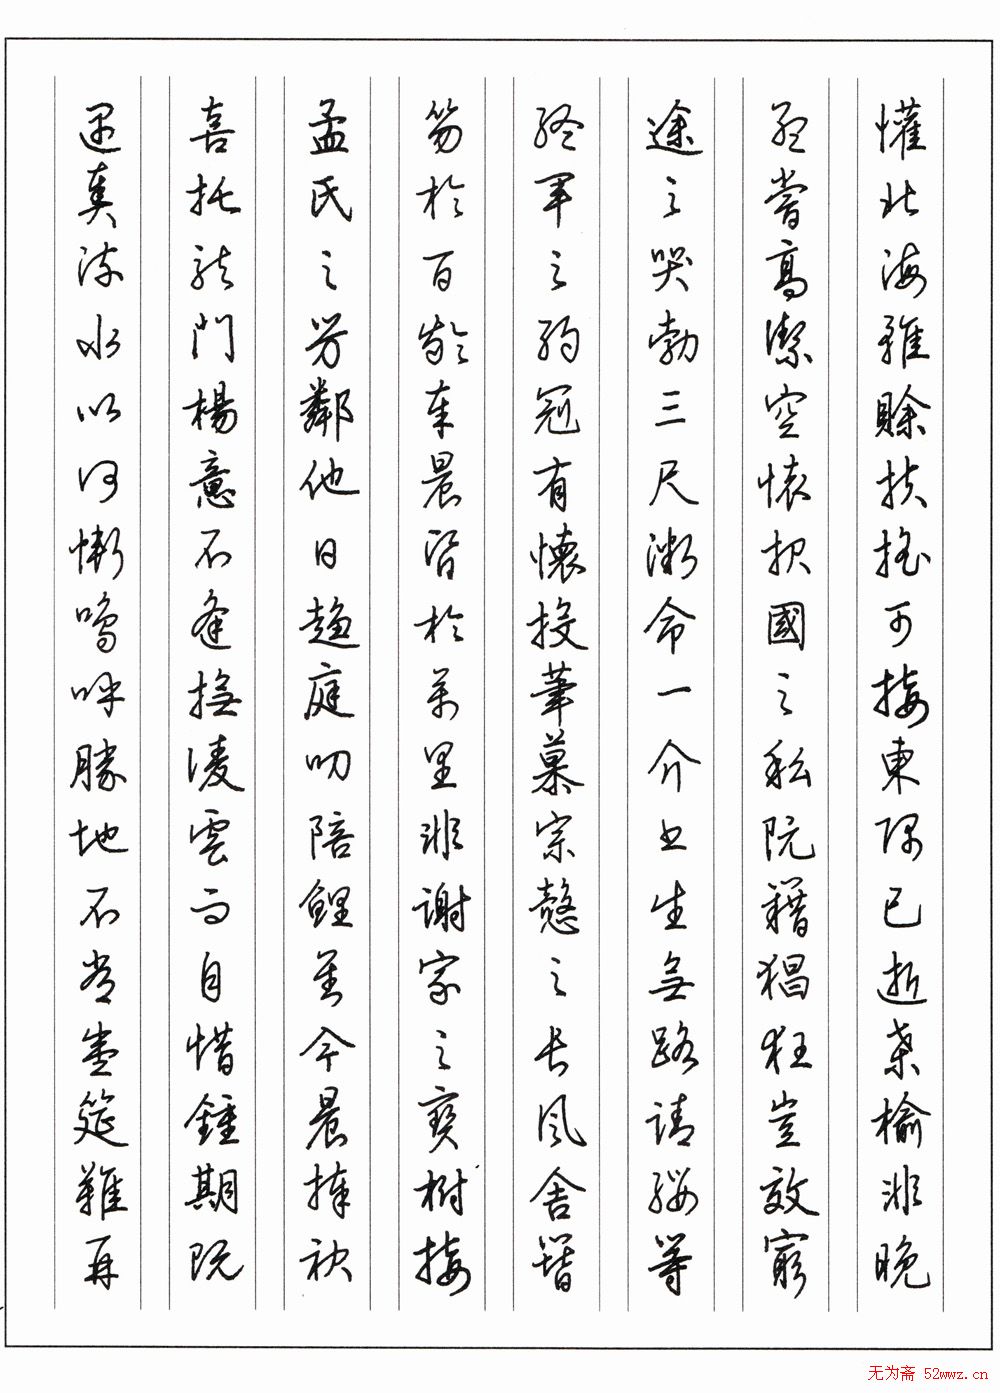 懽北海雖賒扶搖可接東隅已逝桑榆非晚
孟嘗高潔空懷報國之私阮籍猖狂豈效窮
途之哭勃三尺微命一介書生無路請纓等
終軍之弱冠有懷投筆慕宗慤之長風舍簪
笏於百齡奉晨昏於萬里非謝家之寶樹接
孟氏之芳鄰他日趨庭叨陪鯉對今晨捧袂
喜托龍門楊意不逢撫凌雲而自惜鍾期既
遇奏流水以何慚嗚呼勝地不常盛筵難再
无为斋 52wwz.cn